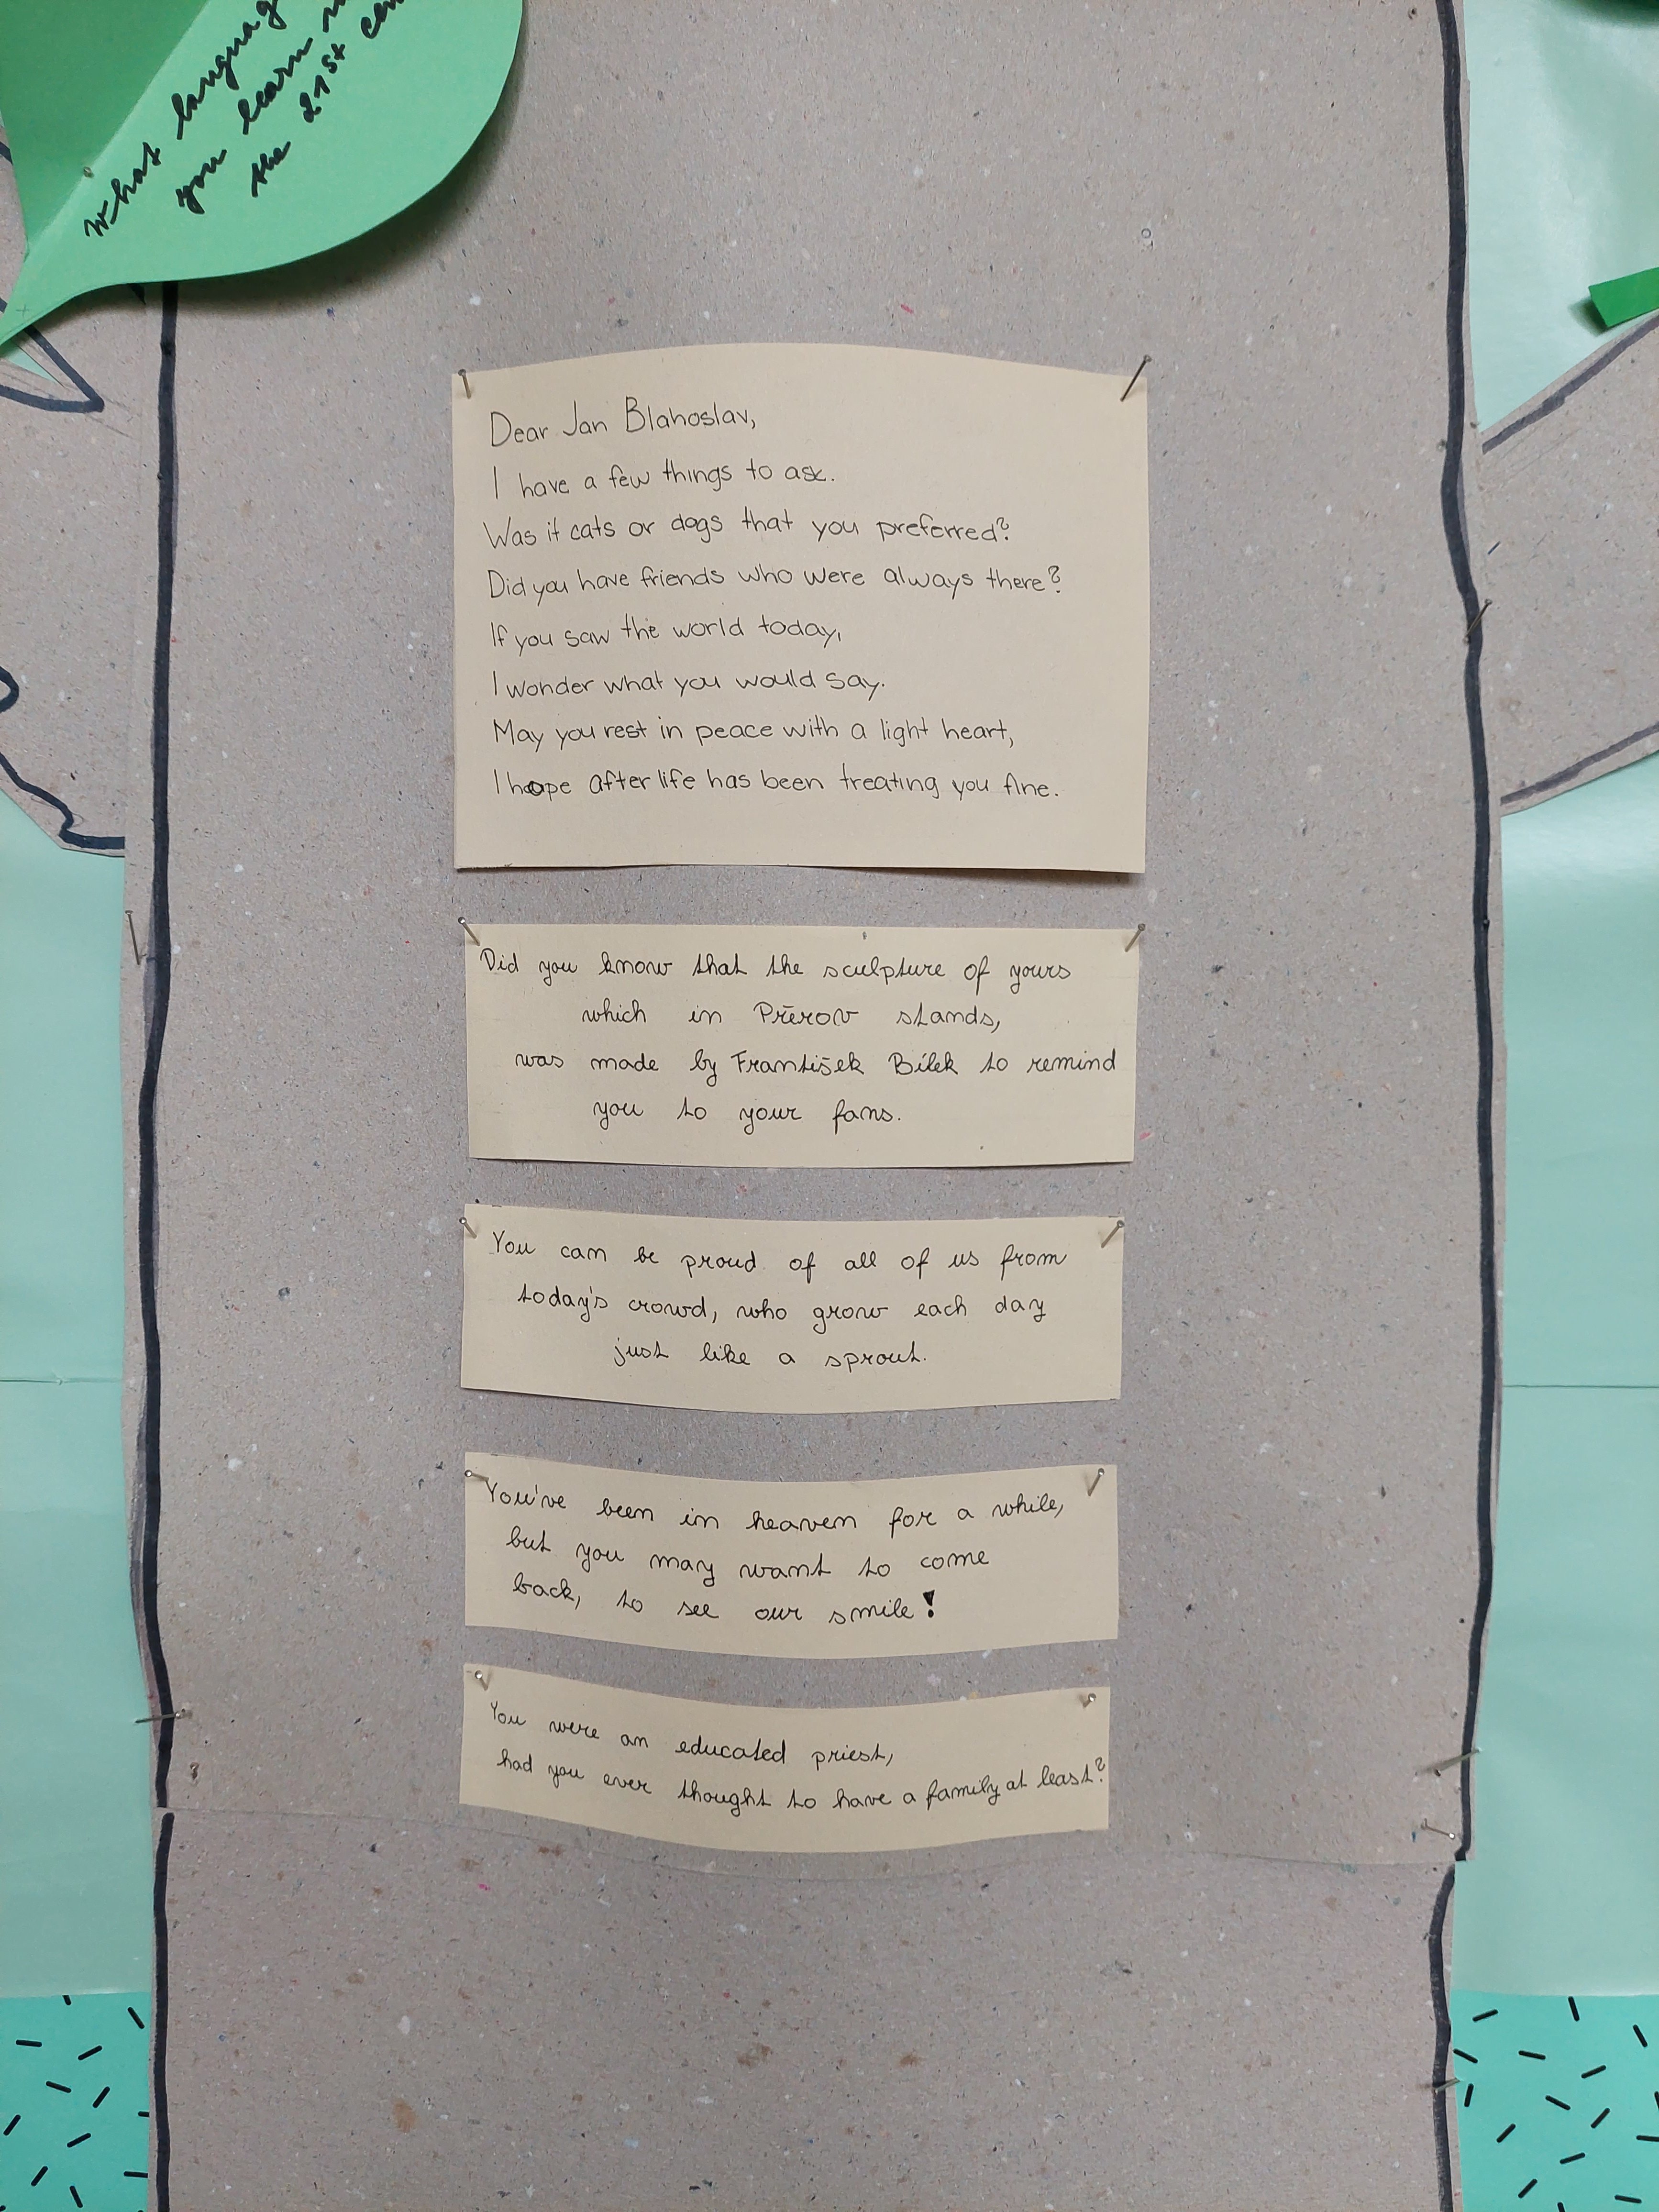 What
you learn
the 21st
Dear Jan Blahoslav,
I have a few things to ask.
Was it cats or dogs that you preferred?
Did you have friends who were always there?
If you saw the world today,
I wonder what you would say.
May you rest in peace with a light heart,
I hope after life has been treating you fine.
Did you know that the sculpture of yours
which in Přerov stands,
was made by František Bílek to remind
you to your fans.
You can be proud of all of us from
today's crowd, who grow each day
just like a sprout.
You've been in heaven for a while,
but you may want to come
back, to see our smile!
You were an educated priest,
had you ever thought to have a family at least?